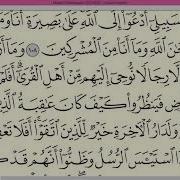 سَبِيلِىٓ أَدْعُوٓا۟ إِلَى ٱللَّهِ عَلَىٰ بَصِيرَةٍ أَنَا۠ وَمَ
نَ ٱللَّهِ وَمَآ أَنَا۠ مِنَ ٱلْمُشْرِكِينَ ١٠٨ وَمَآ أَ
لَّا رِجَالًا نُّوحِىٓ إِلَيْهِم مِّنْ أَهْلِ ٱلْقُرَىٰٓ أَفَلَ
ضِ فَيَنظُرُوا۟ كَيْفَ كَانَ عَـٰقِبَةُ ٱلَّذِ
وَلَدَارُ ٱلْـَٔاخِرَةِ خَيْرٌ لِّلَّذِينَ ٱتَّقَوْا۟ أَفَلَا تَعْقِ
ذَا ٱسْتَيْـَٔسَ ٱلرُّسُلُ وَظَنُّوٓا۟ أَنَّهُمْ قَدْ ك